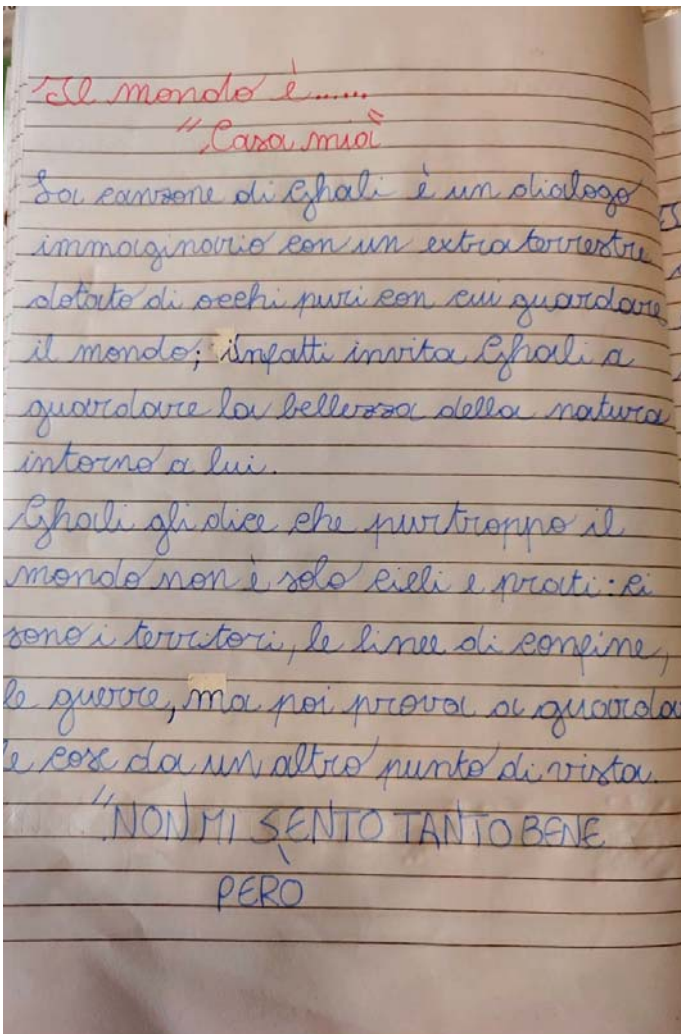 Il mondo è......
"Casa mia"
La canzone di Ghali è un dialogo
immaginario con un extraterrestre
dotato di occhi puri con cui guardare
il mondo; infatti invita Ghali a
guardare la bellezza della natura
intorno a lui.
Ghali gli dice che purtroppo il
mondo non è solo cieli e prati: ci
sono i territori, le linee di confine,
le guerre, ma poi prova a guarda
le cose da un altro punto di vista.
"NON MI SENTO TANTO BENE
PERÒ